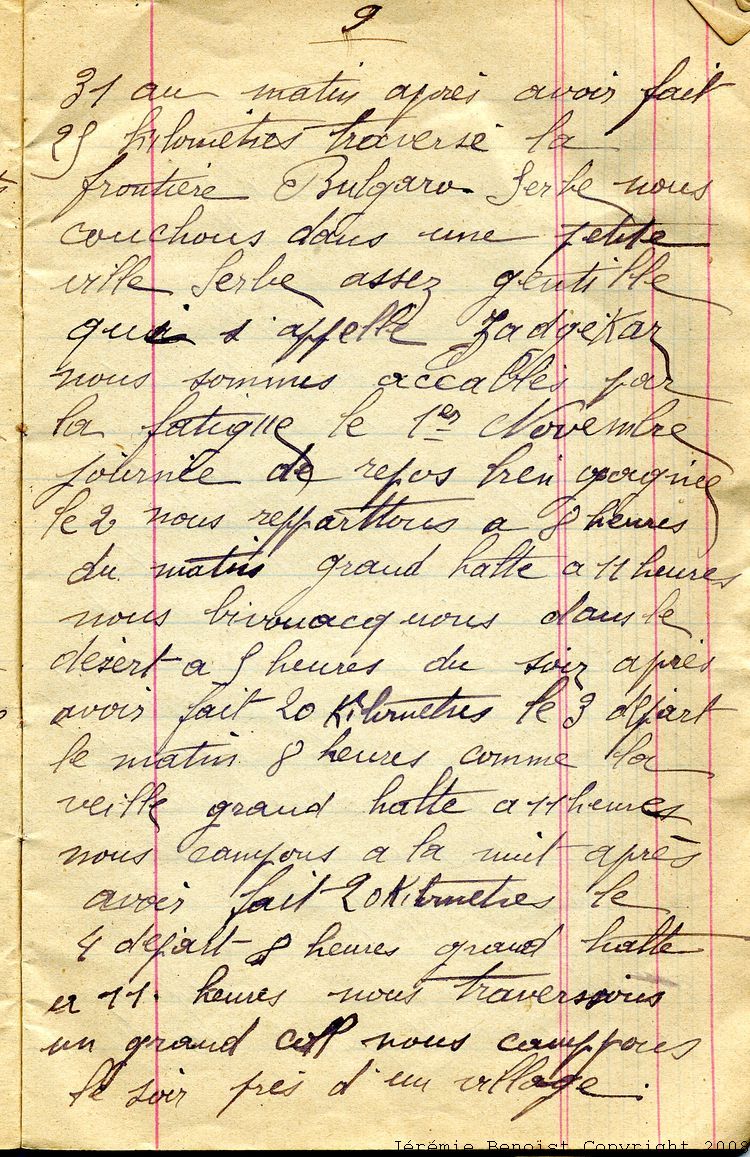 9
31 au matin après avoir fait
25 kilomètres traversé la
frontière Bulgaro-Serbe nous
couchons dans une petite
ville Serbe assez gentille
qui s'appelle Zadgekar
nous sommes accablés par
la fatigue le 1er Novembre
journée de repos bien gagnée
le 2 nous repparttons a 8 heures
du matin grand halte a 11 heures
nous bivouacquons dans le
désert a 5 heures du soir après
avoir fait 20 Kilomètres le 3 départ
le matin 8 heures comme la
veille grand halte a 11 heures
nous campons a la nuit après
avoir fait 20 Kilomètres le
4 départ 8 heures grand halte
a 11 heures nous traversons
un grand coll nous camppons
le soir près d'un village.
Jérémie Benoist Copyright 2008